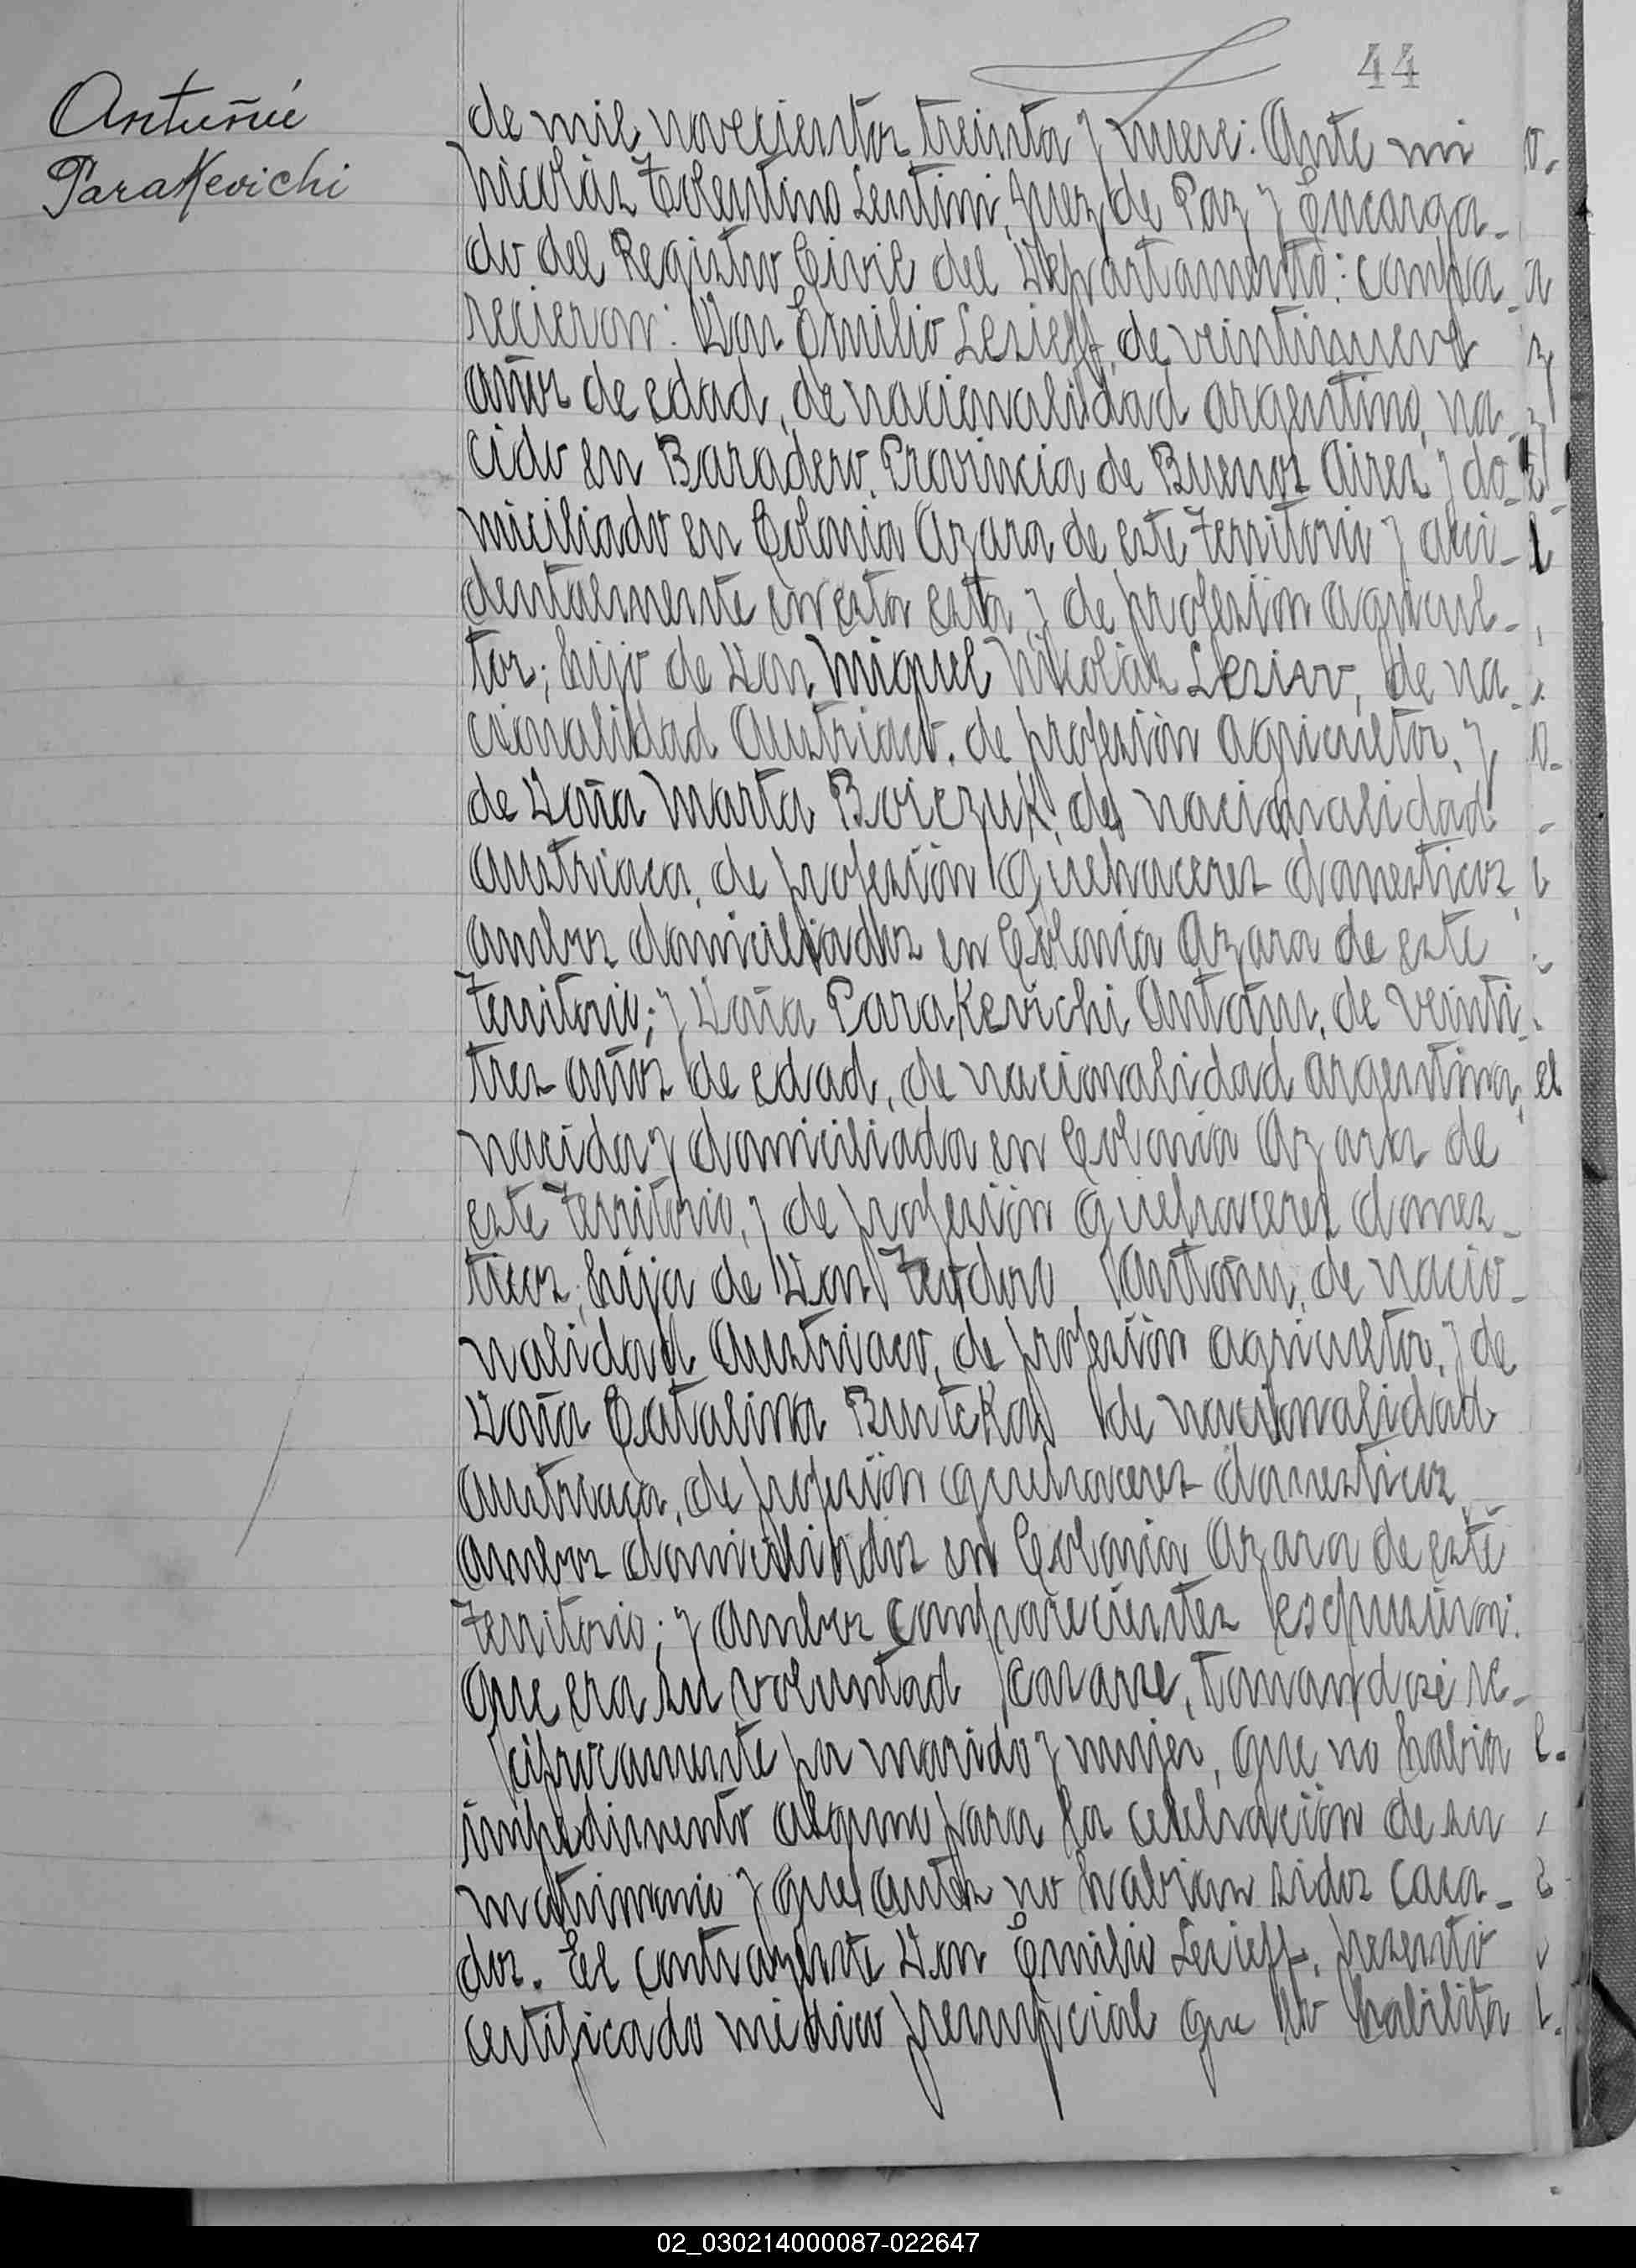 44
Antuñú
ParaKevichi
de mil novecientos treinta y nueve: Ante mi
Nicolás Tolentino Lentini, Juez de Paz y Encarga-
do del Registro Civil del Departamento: compa-
recieron: Don Emilio Lesieff, de veintinueve
años de edad, de nacionalidad argentino, na-
cido en Baradero, Provincia de Buenos Aires y do-
miciliado en Colonia Azara de este Territorio y acci-
dentalmente en esta y de profesión agricul-
tor; hijo de Don Miguel Nikolás Lesiw, de na-
cionalidad Austriaco, de profesión agricultor, y
de Doña Marta Boiczuk, de nacionalidad
Austriaca, de profesión quehaceres domesticos,
ambos domiciliados en Colonia Azara de este
Territorio; y Doña ParaKevichi Antoñu, de veinti-
tres años de edad, de nacionalidad argentina,
nacida y domiciliada en Colonia Azara de
este Territorio, y de profesión quehaceres domes-
ticos; hija de Don Teodoro Antoñu, de nacio-
nalidad Austriaco, de profesión agricultor, y de
Doña Catalina ButeKa de nacionalidad
Austriaca, de profesión quehaceres domesticos,
ambos domiciliados en Colonia Azara de este
Territorio; y ambos comparecientes expusieron:
Que era su voluntad casarse, tomandosé re-
ciprocamente por marido y mujer, que no habia
impedimento alguno para la celebración de su
matrimonio y que antes no habian sidos casa-
dos. El contrayente Don Emilio Lesieff, presentó
certificado médico prenupcial que lo habilita
02_030214000087-022647